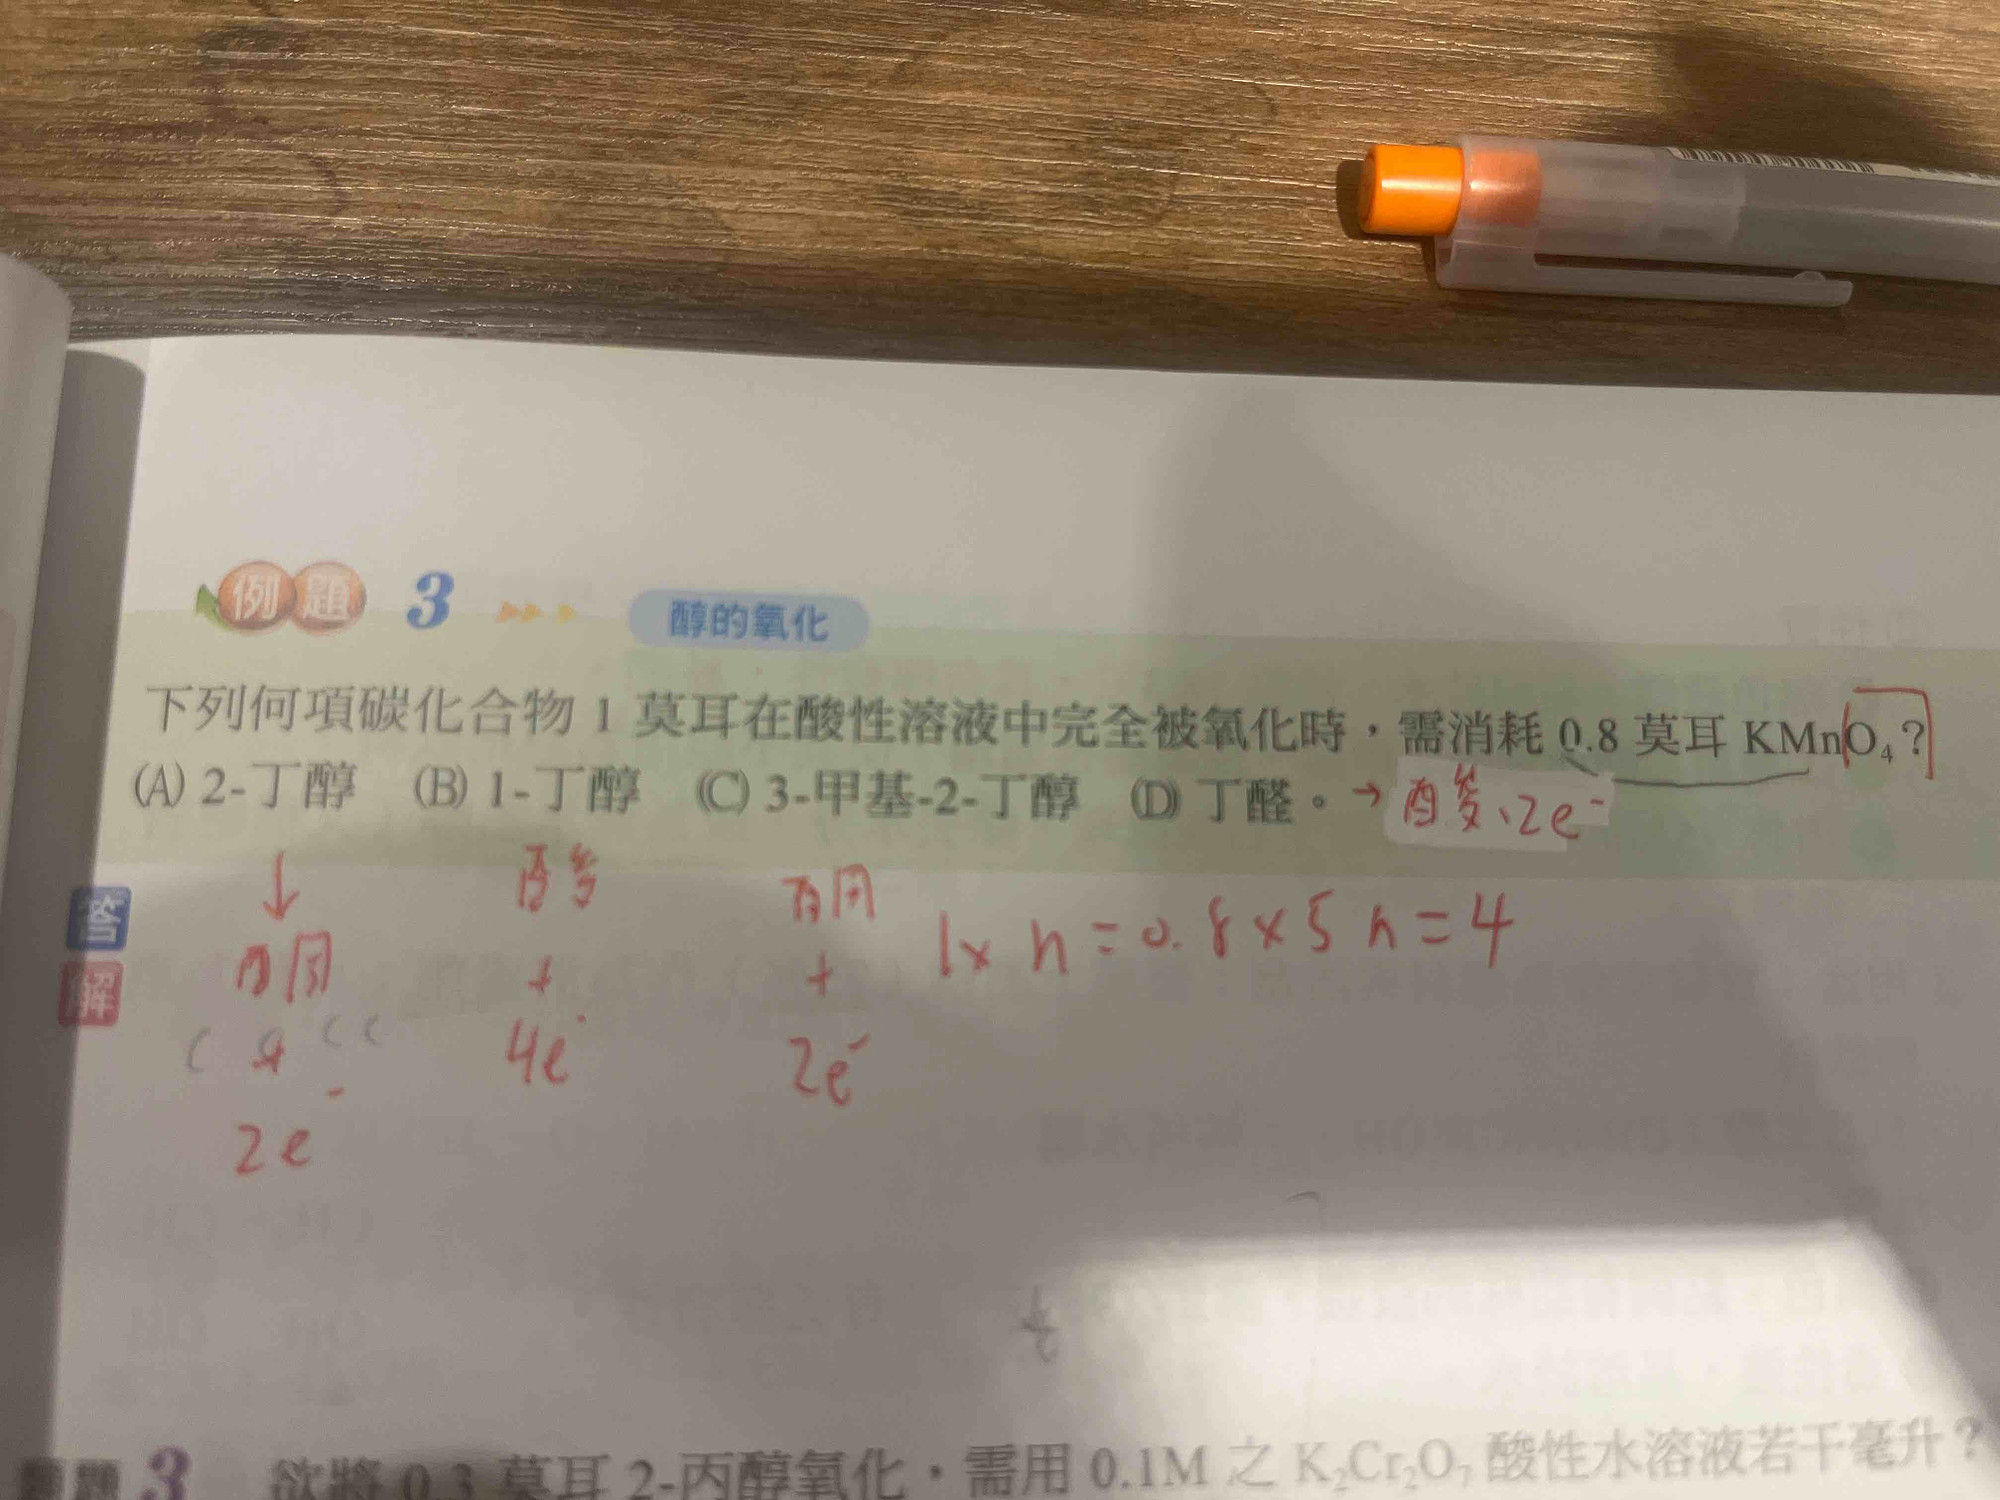 例題 3 醇的氧化
下列何項碳化合物 1 莫耳在酸性溶液中完全被氧化時，需消耗 0.8 莫耳 KMnO₄？
(A) 2-丁醇 (B) 1-丁醇 (C) 3-甲基-2-丁醇 (D) 丁醛。→ 酸、2e⁻
↓ 酸 酮 1× n = 0.8 × 5 n = 4
答 酮 + +
解 4e⁻ 2e⁻
2e⁻
題 3 欲將 0.3 莫耳 2-丙醇氧化，需用 0.1M 之 K₂Cr₂O₇ 酸性水溶液若干毫升？